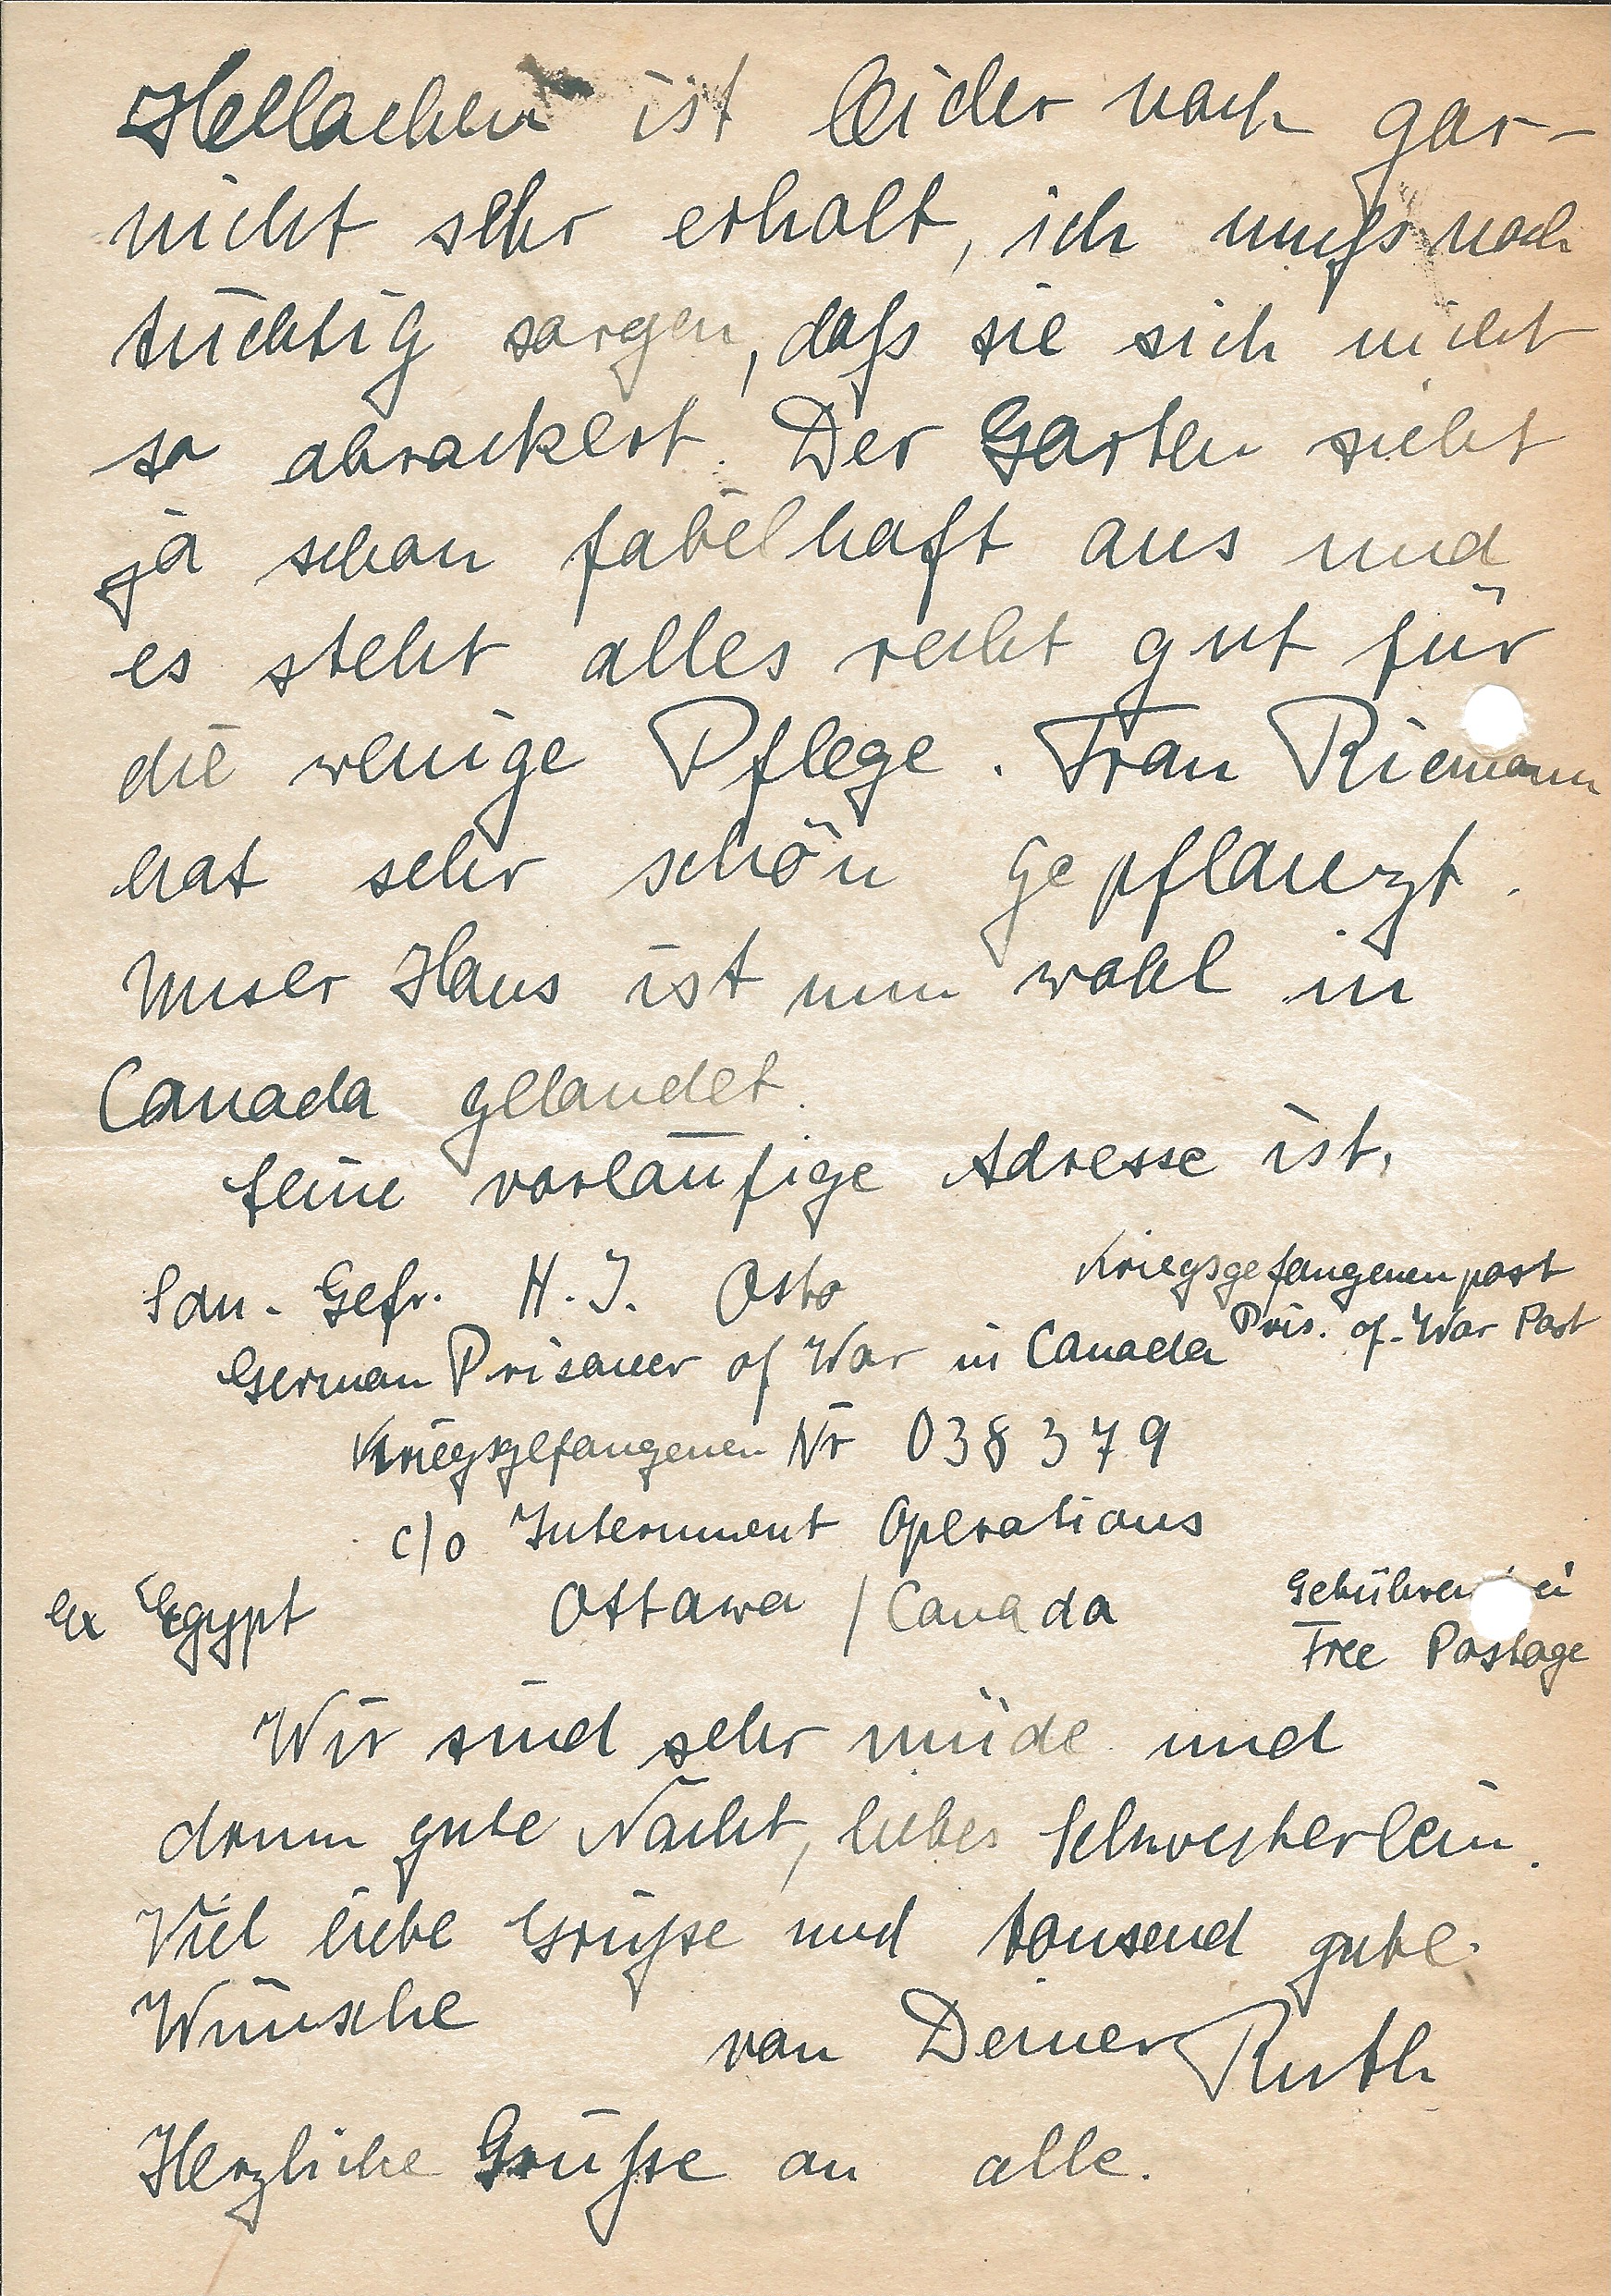 Hellachen ist leider noch gar-
nicht sehr erholt, ich muß noch
tüchtig sorgen, daß sie sich nicht
so abrackert. Der Garten sieht
ja schon fabelhaft aus und
es steht alles recht gut für
die wenige Pflege. Frau Riemann
hat sehr schön gepflanzt.
Unser Haus ist nun wohl in
Canada gelandet.
Seine vorläufige Adresse ist,
San. Gefr. H. J. Otto
Kriegsgefangenenpost
Pris. of. War Post
German Prisoner of War in Canada
Kriegsgefangenen Nr 038379
c/o Internment Operations
Ex Egypt Ottawa / Canada
Free Postage
Wir sind sehr müde und
drum gute Nacht, liebes Schwesterlein.
Viel liebe Grüße und tausend gute
Wünsche
von Deiner Ruth
Herzliche Grüße an alle.